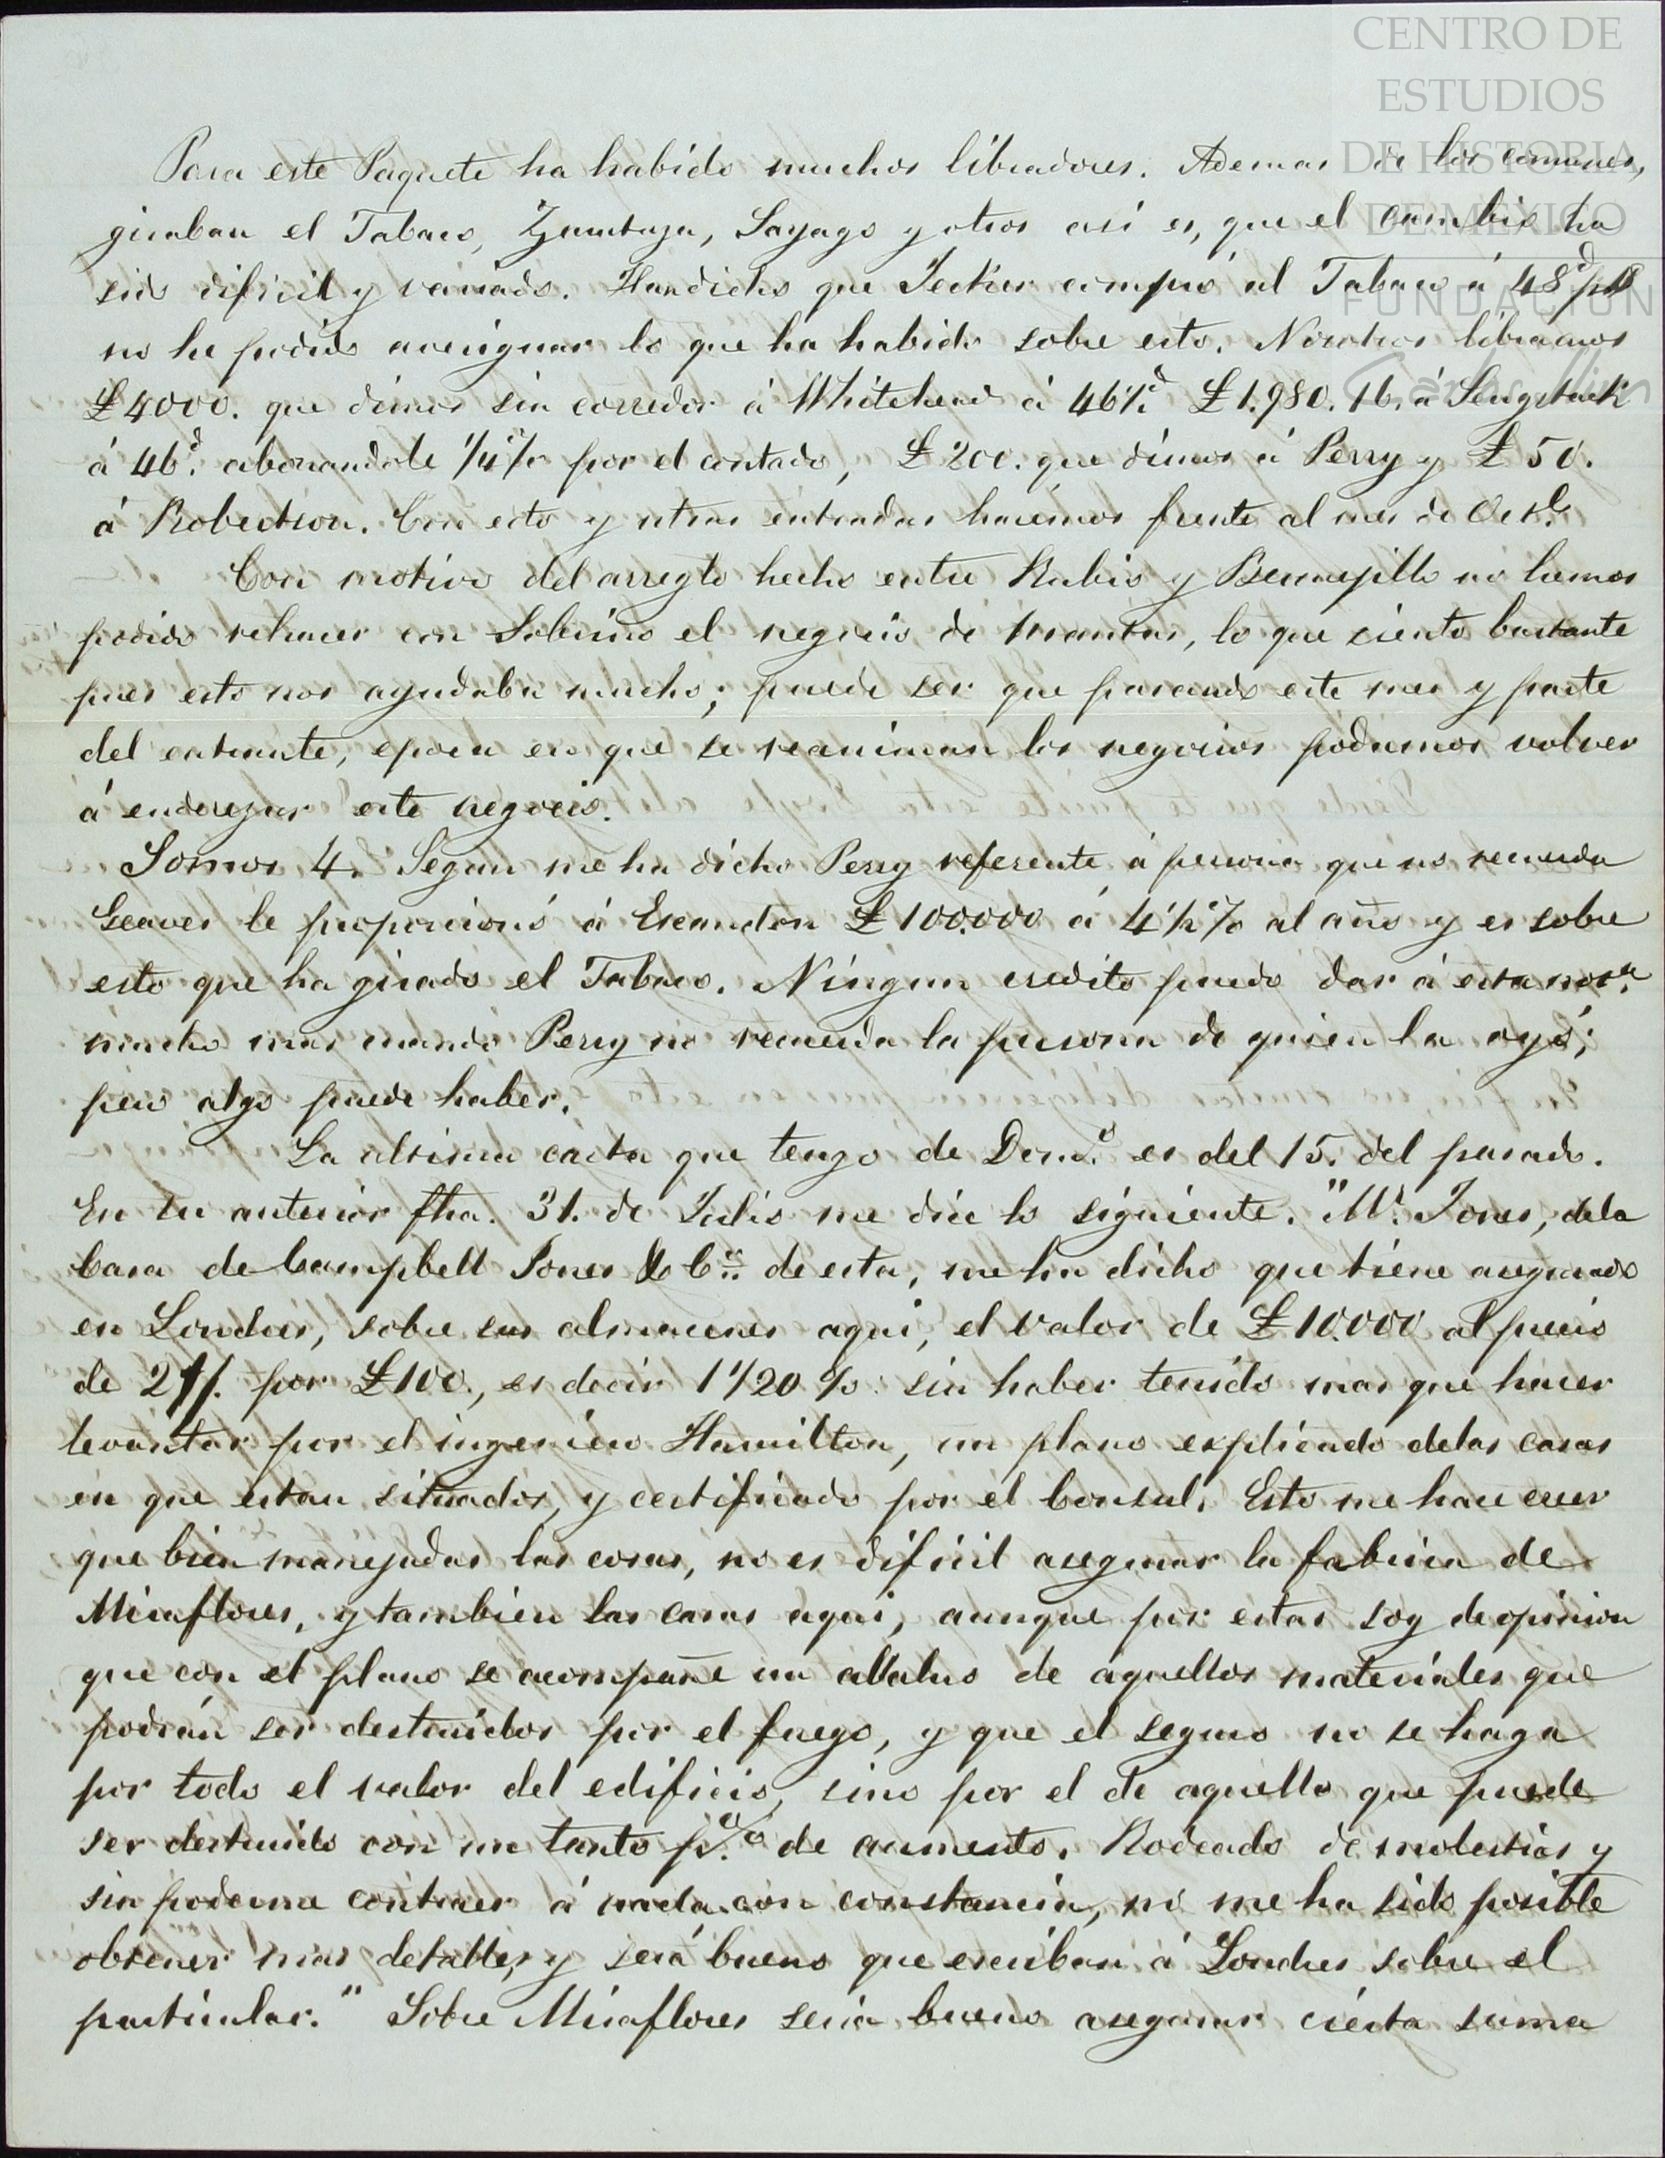 CENTRO DE
ESTUDIOS
DE HISTORIA
DE MEXICO
FUNDACION
Carlos Slim
Para este Paquete ha habido muchos libradores. Ademas de los comunes,
giraban el Tabaco, Yzurtuza, Sayago y otros asi es, que el cambio ha
sido dificil y variado. Han dicho que Jecker compró al Tabaco á 48ᵈ
no he podido averiguar lo que ha habido sobre esto. Nosotros libramos
£4000. que dimos sin corredor á Whitehead á 46½ᵈ £1.980.16. á Sengstack
á 46ᵈ. abonandole ¼% por el contado, £200. que dimos á Perry y £50.
á Robertson. Con esto y otras entradas hacemos frente al mes de Octᵉ.
Con motivo del arreglo hecho entre Rubio y Bermejillo no hemos
podido rehacer con Sobrino el negocio de mantas, lo que ciento bastante
pues esto nos ayudaba mucho; puede ser que pasando este mes y parte
del entrante, epoca en que se reaniman los negocios podramos volver
á enderezar este negocio.
Somos 4. Segun me ha dicho Perry referente á persona que no recuerda
Geaves le proporcionó á Escandon £100.000 á 4½% al año y es sobre
esto que ha girado el Tabaco. Ningun credito puedo dar á esta notᵃ.
mucho mas cuando Perry no recuerda la persona de quien la oyó;
pero algo puede haber.
La ultima carta que tengo de Domᵒ. es del 15. del pasado.
En su anterior fha. 31. de Julio me dice lo siguiente. "Mʳ. Jones, dela
Casa de Campbell Jones & Cᵃ. de esta, me ha dicho que tiene asegurado
en Londres, sobre sus almacenes aqui, el valor de £10.000 al precio
de 21/. por £100., es decir 1 1/20 %. sin haber tenido mas que hacer
levantar por el ingeniero Hamilton, un plano esplicado delas casas
en que estan situados, y certificado por el Consul. Esto me hace creer
que bien manejadas las cosas, no es dificil asegurar la fabrica de
Miraflores, y tambien las casas aqui, aunque por estas soy de opinion
que con el plano se acompañe un abaluo de aquellos materiales que
podrán ser destruidos por el fuego, y que el seguro no se haga
por todo el valor del edificio, sino por el de aquello que puede
ser destruido con un tanto p.% de aumento. Rodeado de molestias y
sin poderme contraer á nada con constancia, no me ha sido posible
obtener mas detalles, y será bueno que escriban á Londres sobre el
particular." Sobre Miraflores seria bueno asegurar cierta suma